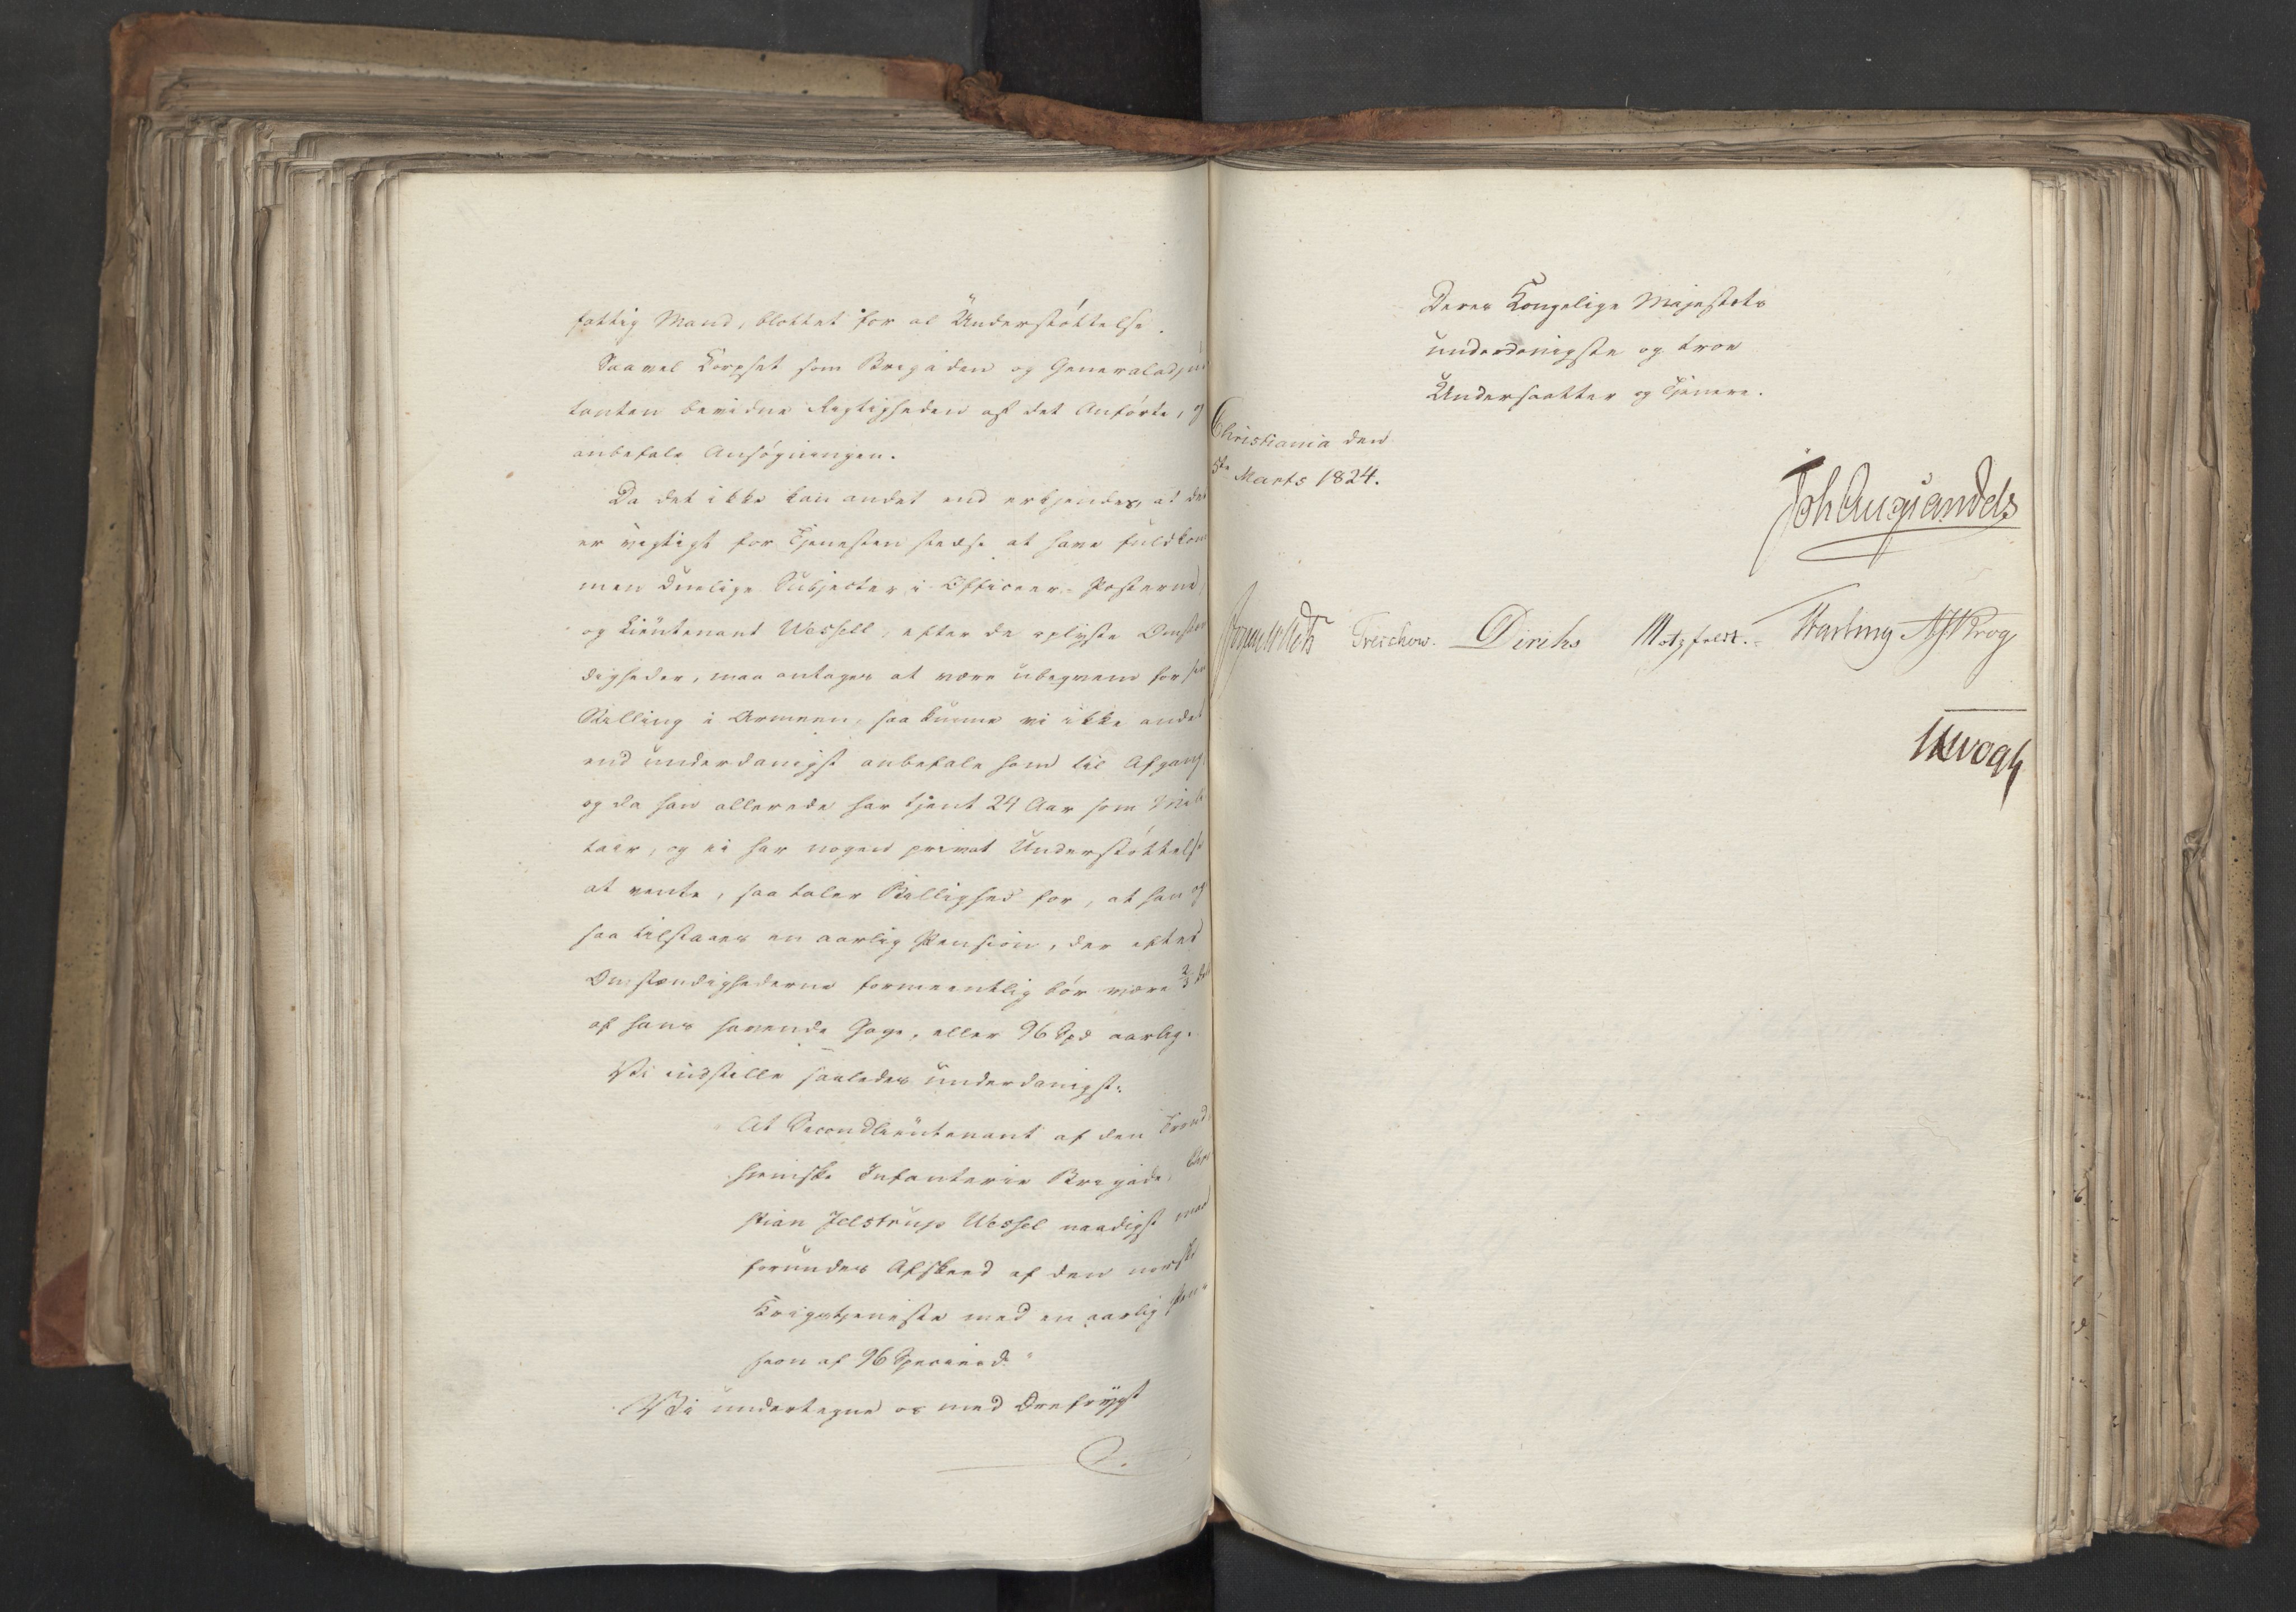 fattig Mand, blottet for al Understöttelse.
Saavel Korpset som Brigaden og Generaladju
tanten bevidne Rigtigheden af det Anförte, og
anbefale Ansögningen.
Da det ikke kan andet end erkjendes, at det
er vigtigt for Tjenesten stedse at have fuldkom
men duelige Subjecter i Officeer-Posterne,
og Lieutenant Wessell, efter de oplyste Omstæn
digheder, maa antages at være ubeqvem for sin
Stilling i Armeen, saa kunne vi ikke andet
end underdanigst anbefale ham til Afgang,
og da han allerede har tjent 24 Aar som Mili
tair, og ei har nogen privat Understöttelse
at vente, saa taler Billighed for, at han og
saa tilstaaes en aarlig Pension, der efter
Omstændighederne formeentlig bör være 2/3 del
af hans havende Gage, eller 96 Spd aarlig.
Vi indstille saaledes underdanigst:
At Secondlieutenant af den Trond
hjemske Infanterie Brigade, Chri
stian Jelstrup Wessel naadigst maa
forundes Afskeed af den norske
Krigstjeneste med en aarlig Pen
sion af 96 Speciesd."
Vi undertegne os med Ærefrygt
Deres Kongelige Majestæts
underdanigste og troe
Undersaatter og Tjenere.
Christiania den
5te Marts 1824.
Joh Aug Sandels
Treschow. Diriks Motzfeldt. Fasting